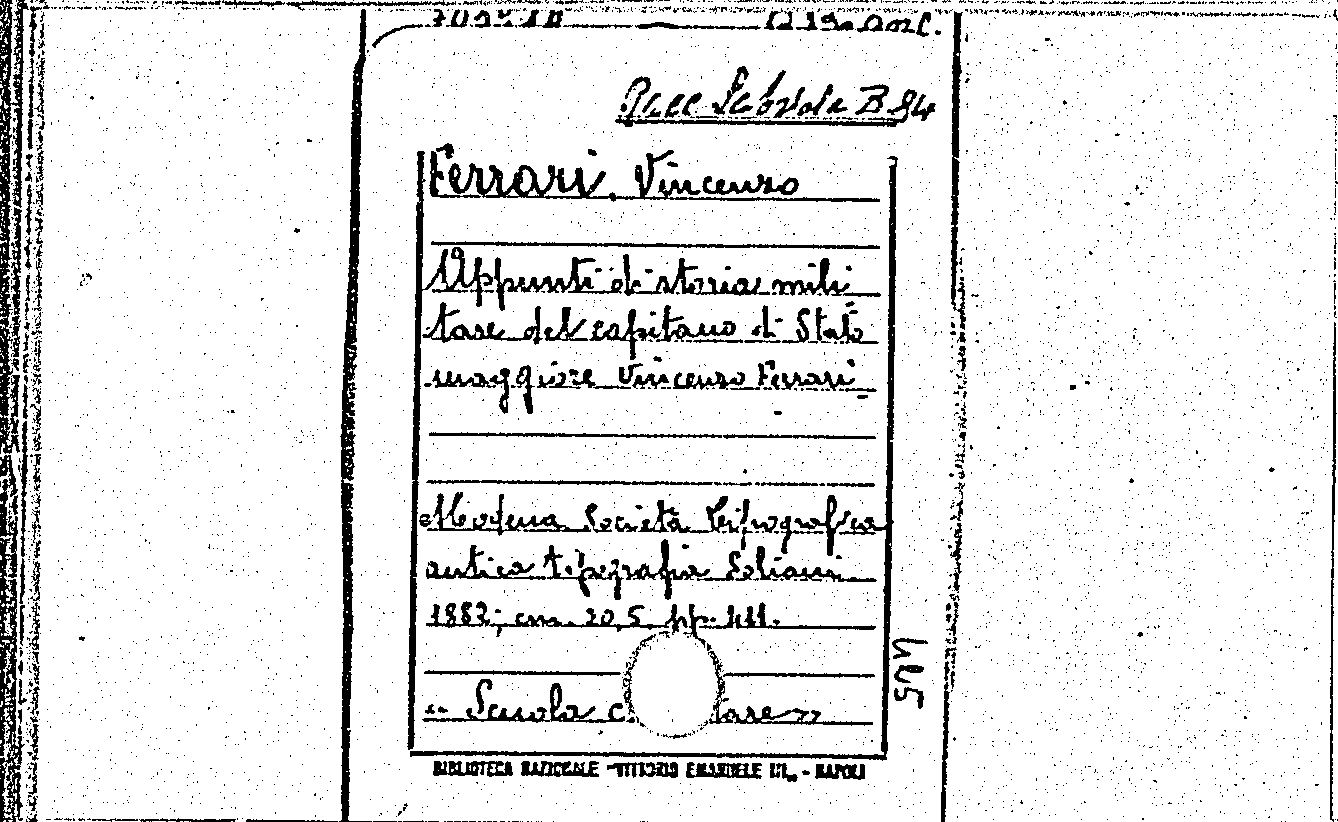 Racc Labriola B. 84
Ferrari, Vincenzo
Appunti di storia mili
tare del capitano di Stato
maggiore Vincenzo Ferrari
Modena Società Tipografica
antica tipografia Soliani
1882; cm. 20,5 pp.
"Scuola tare"
BIBLIOTECA NAZIONALE "VITTORIO EMANUELE III" - NAPOLI